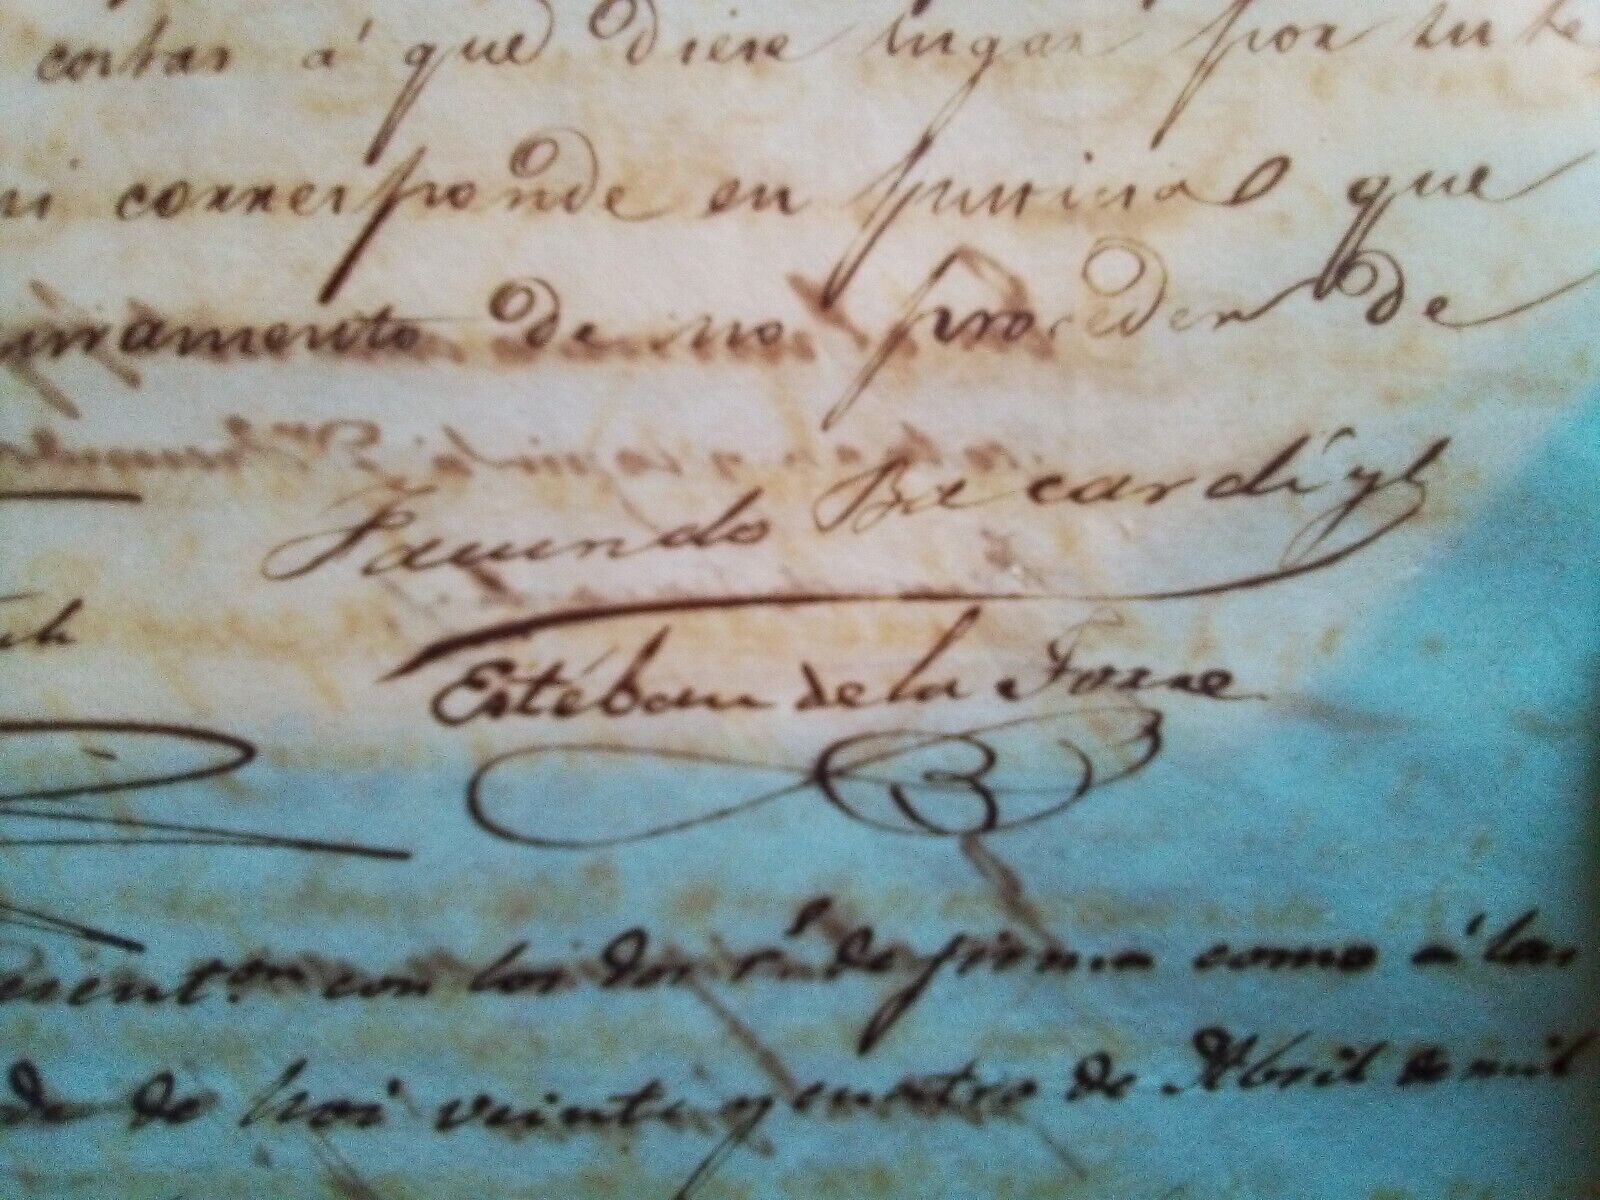 costas á que diese lugar por su te
ni corresponde en justicia que
juramento de no proceder de
Facundo Bacardí y
Estéban de la Torre
con los dos r.s de firma como á las
de de hoi veinte y cuatro de Abril de mil